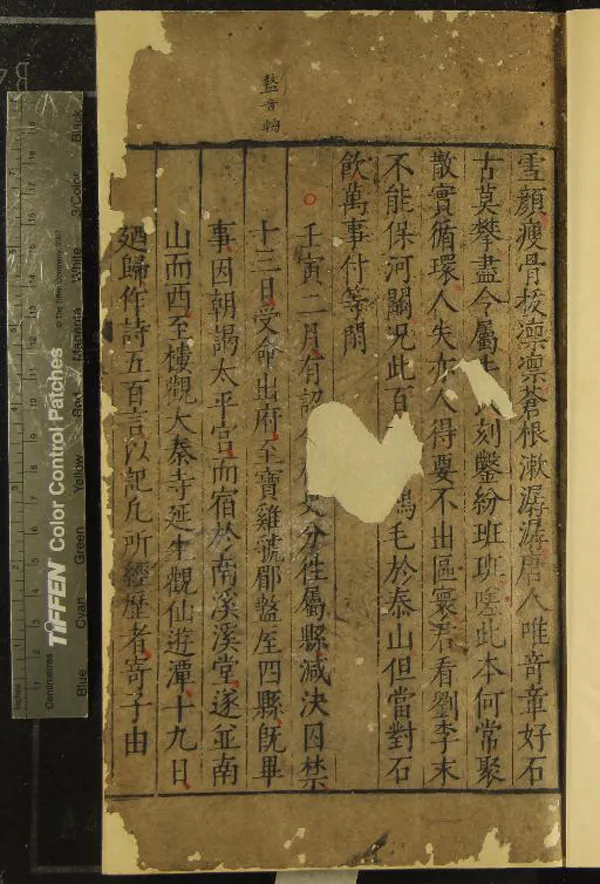 盩音輈
雪顔瘦骨拔凛凛蒼根漱潺潺唐人唯竒章好石
古莫攀盡令屬刻鑿紛班班嗟此本何常聚
散實循環人失亦人得要不出區寰君看劉李末
不能保河關况此百鴻毛於泰山但當對石
飲萬事付等閑
壬寅二月有詔吏分徃屬縣減決囚禁
十三日受命出府至寶雞虢郿盩厔四縣旣畢
事因朝謁太平宫而宿於南溪溪堂遂並南
山而西至樓觀大秦寺延生觀仙遊潭十九日
廼歸作詩五百言以記凡所經歷者寄子由
TIFFEN Color Control Patches
Blue Cyan Green Yellow Red Magenta White 3/Color Black
Inches
Centimetres